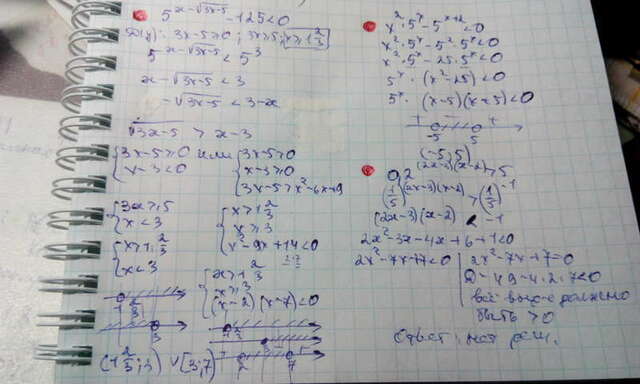 5^(x-√(3x-5)) - 125 < 0
3x-5≥0; 3x≥5; x≥1 2/3
5^(x-√(3x-5)) < 5^3
x-√(3x-5) < 3
-√(3x-5) < 3-x
√(3x-5) > x-3
{3x-5≥0 или {3x-5≥0
x-3<0 x-3≥0
3x-5>x²-6x+9
{3x≥5 {x≥1 2/3
x<3 x≥3
x²-9x+14<0
{x≥1 2/3 2·7
x<3 {x≥1 2/3
x≥3
(x-2)(x-7)<0
1 2/3
3 3
2 7
(1 2/3; 3) ∪ [3; 7)
x²·5^x - 5^(x+2) < 0
x²·5^x - 5²·5^x < 0
x²·5^x - 25·5^x < 0
5^x·(x²-25) < 0
5^x·(x-5)(x+5) < 0
+ - +
-5 5
(-5; 5)
0,2^((2x-3)(x-2)) > 5
(1/5)^((2x-3)(x-2)) > (1/5)^(-1)
(2x-3)(x-2) < -1
2x²-3x-4x+6+1<0
2x²-7x+7<0 2x²-7x+7=0
D=49-4·2·7<0
должно
быть >0
Ответ: нет реш.